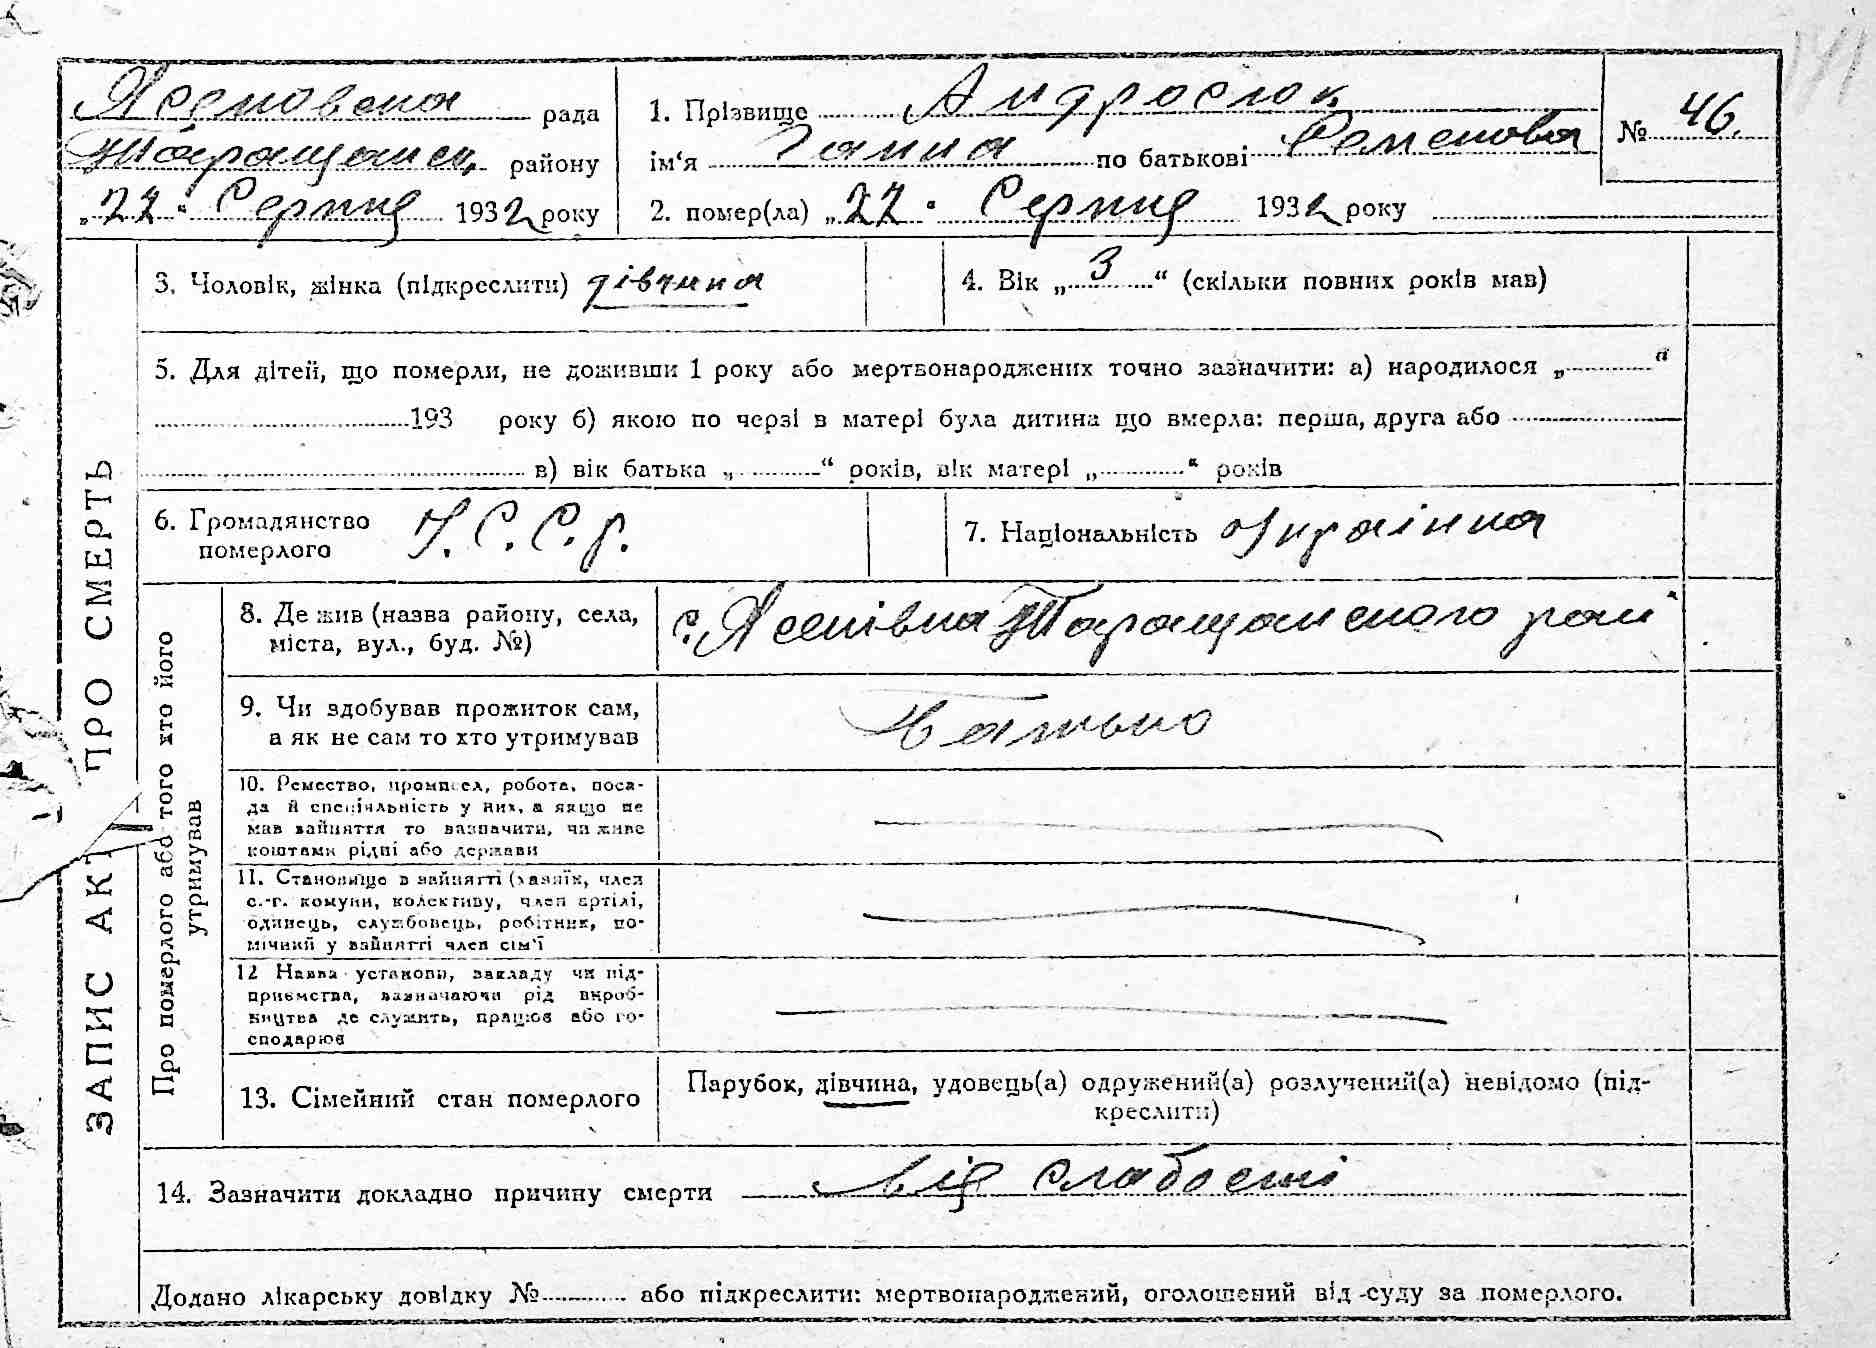 Ясеновська рада
Таращанськ. району
„22“ Серпня 1932 року
1. Прізвище Андросюк
ім‘я Ганна по батькові Семенова
2. помер(ла) „22“ Серпня 1932 року
№ 46.
ЗАПИС АКТ ПРО СМЕРТЬ
3. Чоловік, жінка (підкреслити) дівчина
4. Вік „3“ (скільки повних років мав)
5. Для дітей, що померли, не доживши 1 року або мертвонароджених точно зазначити: а) народилося „ “
193 року б) якою по черзі в матері була дитина що вмерла: перша, друга або
в) вік батька „ “ років, вік матері „ “ років
6. Громадянство
померлого У.С.С.р.
7. Національність Українка
Про померлого або того хто його
утримував
8. Де жив (назва району, села,
міста, вул., буд. №)
с. Ясенівка Таращанского рай
9. Чи здобував прожиток сам,
а як не сам то хто утримував
Батько
10. Ремество, промисел, робота, поса-
да й спеціяльність у них, а якщо не
мав зайняття то зазначити, чи живе
коштами рідні або держави
11. Становище в зайнятті (хазяїн, член
с.-г. комуни, колективу, член артілі,
одинець, службовець, робітник, по-
мічний у зайнятті член сім'ї
12 Назва установи, закладу чи під-
приємства, зазначаючи рід вироб-
ництва де служить, працює або го-
сподарює
13. Сімейний стан померлого
Парубок, дівчина, удовець(а) одружений(а) розлучений(а) невідомо (під-
креслити)
14. Зазначити докладно причину смерти від слабости
Додано лікарську довідку № або підкреслити: мертвонароджений, оголошений від суду за померлого.